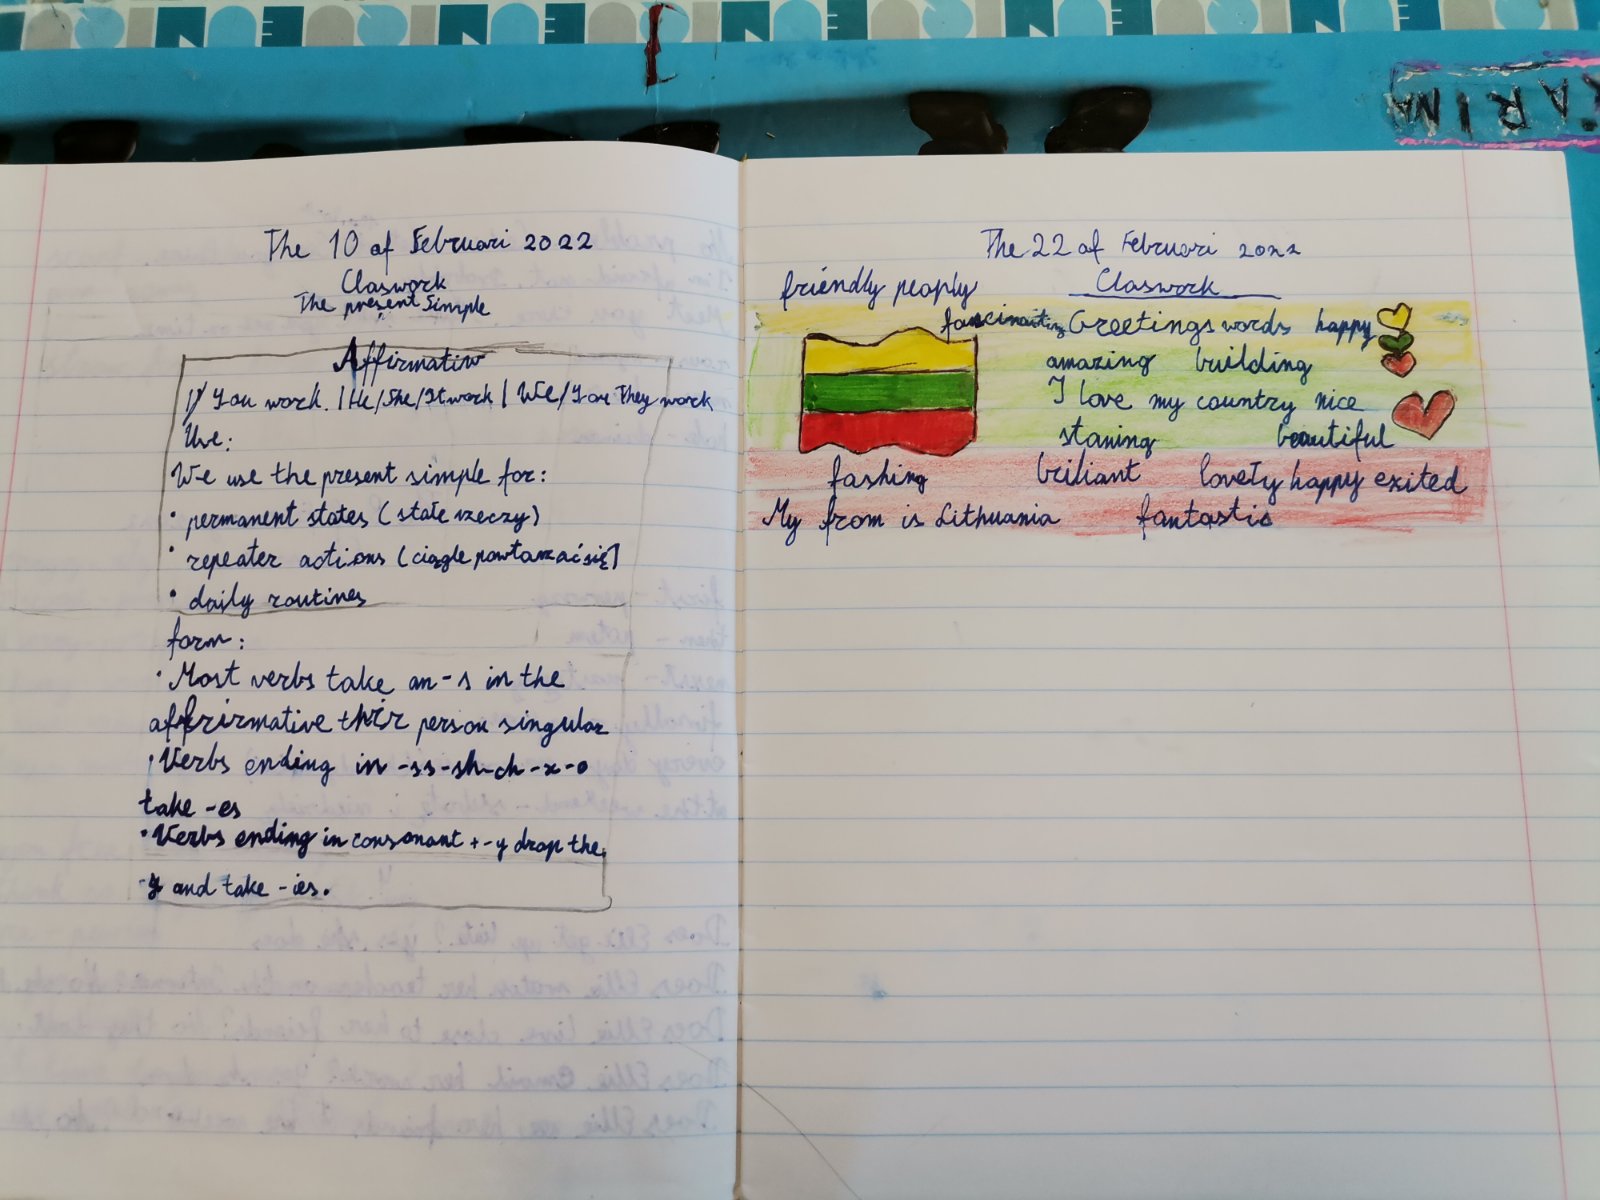 KARINA
The 10 of Februari 2022
Claswork
The present Simple
Affirmativ
I/You work. | He/She/It work | We/You They work
Use:
We use the present simple for:
• permanent states (stałe rzeczy)
• repeater actions (ciągle powtarzać się)
• daily routines
form:
• Most verbs take an -s in the
affrirmative thir person singular
• Verbs ending in -ss-sh-ch-x-o
take -es
• Verbs ending in consonant + -y drop the
-y and take -ies.
The 22 of Februari 2022
Claswork
friendly peoply
Greetings words happy
amazing building
I love my country nice
staning beautiful
fashing briliant lovely happy exited
My from is Lithuania fantastic